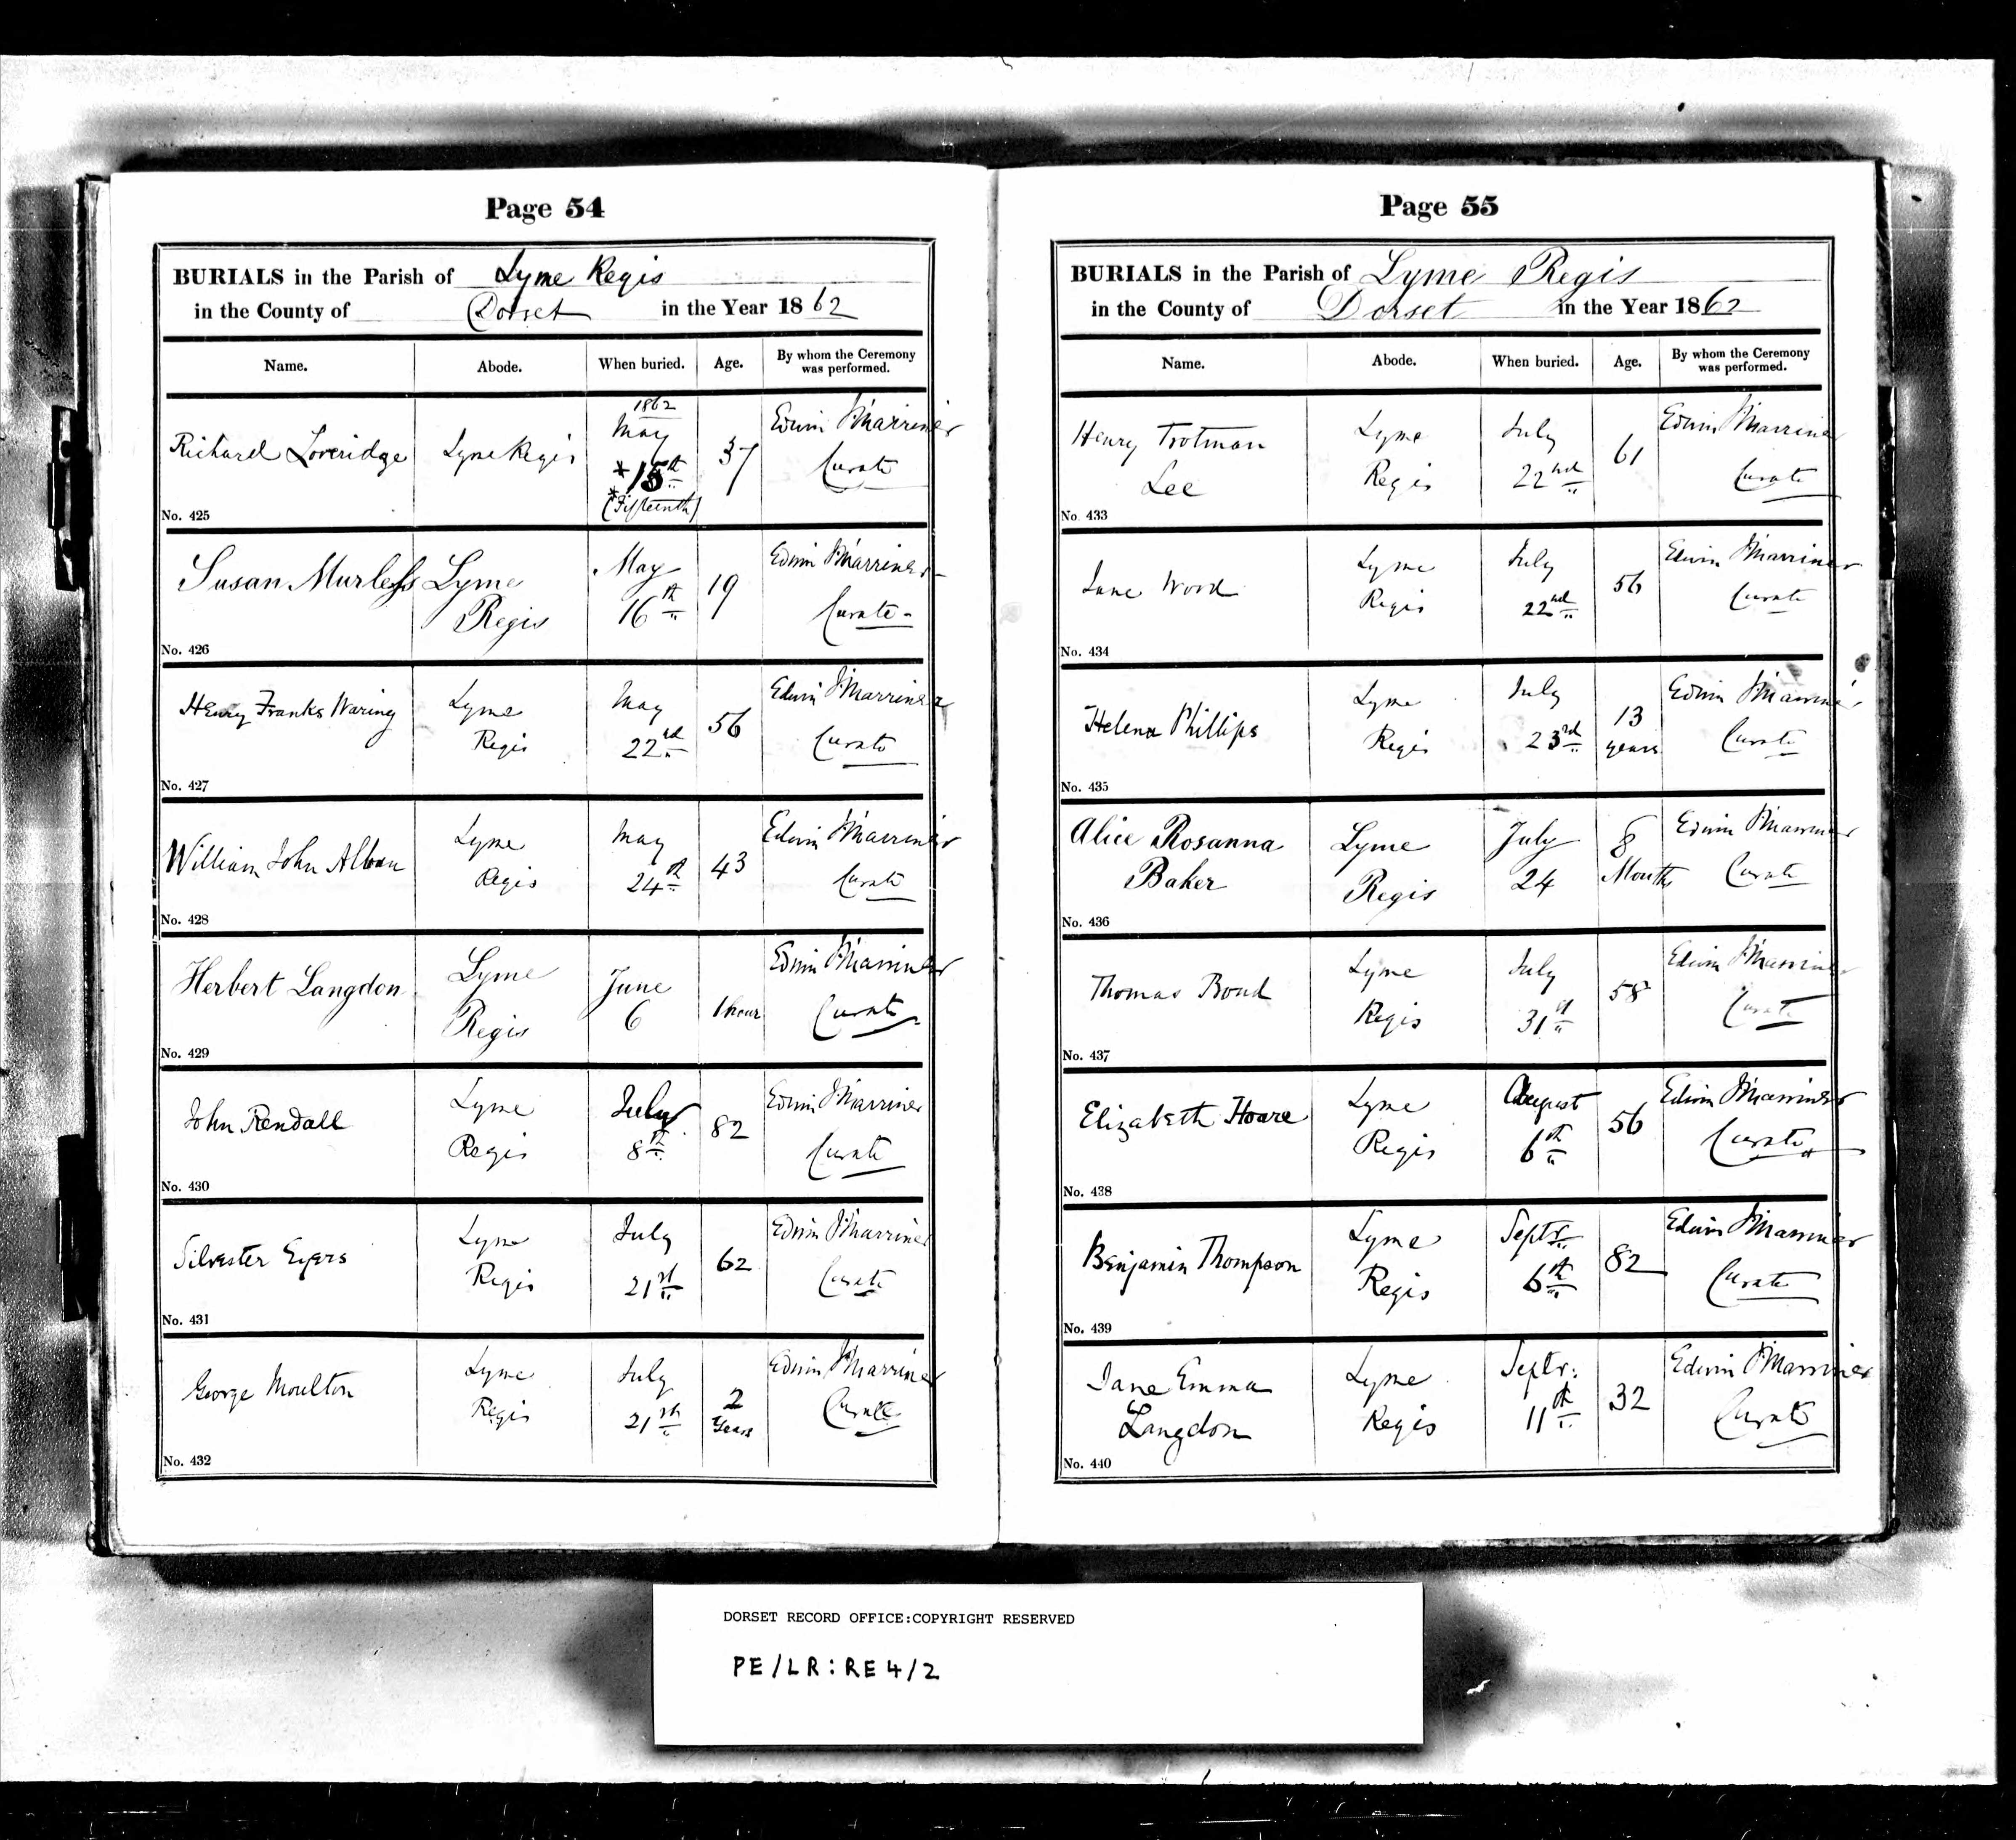 Page 54
BURIALS in the Parish of Lyme Regis
in the County of Dorset in the Year 1862
Name. Abode. When buried. Age. By whom the Ceremony was performed.
Richard Loveridge Lyme Regis 1862 May *15th *(Fifteenth) 37 Edwin Marriner Curate
No. 425
Susan Murless Lyme Regis May 16th 19 Edwin Marriner Curate
No. 426
Henry Franks Waring Lyme Regis May 22nd 56 Edwin Marriner Curate
No. 427
William John Alban Lyme Regis May 24th 43 Edwin Marriner Curate
No. 428
Herbert Langdon Lyme Regis June 6 1 hour Edwin Marriner Curate
No. 429
John Rendall Lyme Regis July 8th 82 Edwin Marriner Curate
No. 430
Silvester Eyers Lyme Regis July 21st 62 Edwin Marriner Curate
No. 431
George Moulton Lyme Regis July 21st 2 Years Edwin Marriner Curate
No. 432
Page 55
BURIALS in the Parish of Lyme Regis
in the County of Dorset in the Year 1862
Name. Abode. When buried. Age. By whom the Ceremony was performed.
Henry Trotman Lee Lyme Regis July 22nd 61 Edwin Marriner Curate
No. 433
Jane Wood Lyme Regis July 22nd 56 Edwin Marriner Curate
No. 434
Helena Phillips Lyme Regis July 23rd 13 years Edwin Marriner Curate
No. 435
Alice Rosanna Baker Lyme Regis July 24 8 Months Edwin Marriner Curate
No. 436
Thomas Bond Lyme Regis July 31st 58 Edwin Marriner Curate
No. 437
Elizabeth Hoare Lyme Regis August 6th 56 Edwin Marriner Curate
No. 438
Benjamin Thompson Lyme Regis Septr. 6th 82 Edwin Marriner Curate
No. 439
Jane Emma Langdon Lyme Regis Septr: 11th 32 Edwin Marriner Curate
No. 440
DORSET RECORD OFFICE:COPYRIGHT RESERVED
PE/LR:RE4/2